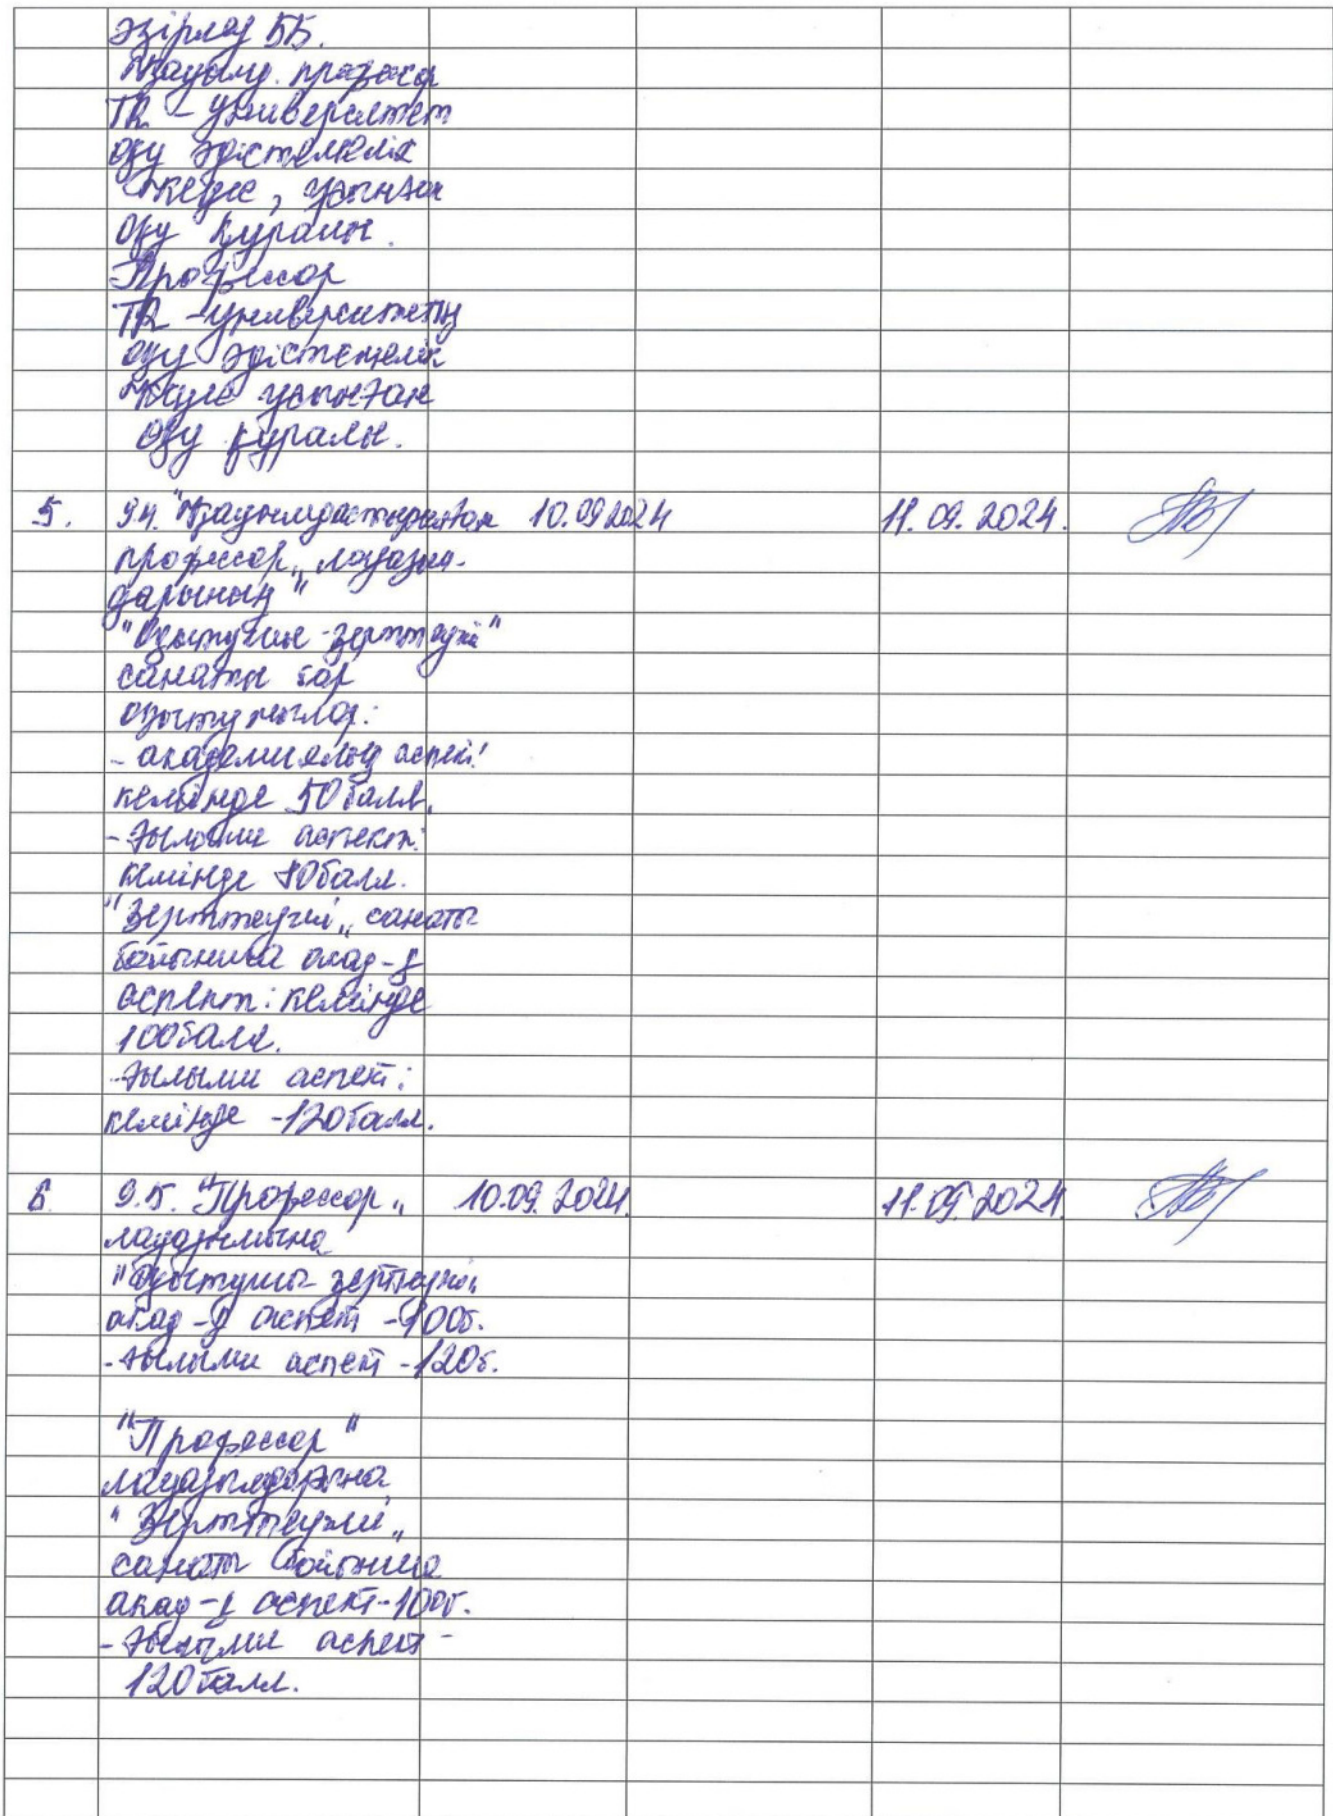 әзірлеу ББ.
Қауым. професор
ТR - Университет
оқу әдістемелік
кеңес, ұсынған
оқу құралы.
Профессор
ТR - университетің
оқу әдістемелік
кеңес ұсынған
оқу құралы.
5. 9.4. "Қауымдастырылған 10.09.2024 11.09.2024.
профессор" лауазым-
дарының"
"Оқытушы-зерттеуші"
санаты бар
оқытушылар:
- академиялық аспект:
кемінде 50 балл.
- Ғылыми аспект:
кемінде 80 балл.
"Зерттеуші" санаты
бойынша акад-қ
аспект: кемінде
100 балл.
- Ғылыми аспект:
кемінде - 120 балл.
6. 9.5. "Профессор" 10.09.2024. 11.09.2024
лауазымына
"Оқытушы зерттеуші"
акад-қ аспект - 100б.
- Ғылыми аспект - 120б.
"Профессор"
лауазымдарына
"Зерттеуші"
санаты бойынша
акад-қ аспект - 100б.
- Ғылыми аспект -
120 балл.